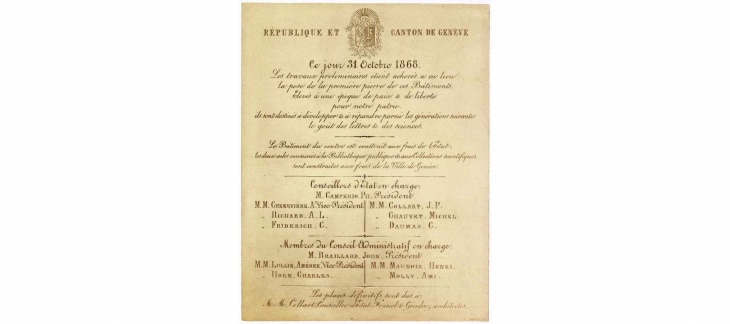 RÉPUBLIQUE ET CANTON DE GENÈVE
Ce jour 31 Octobre 1868.
Les travaux préliminaires étant achevés, a eu lieu
la pose de la première pierre de ces Bâtiments.
Élevés à une époque de paix & de liberté
pour notre patrie,
ils sont destinés à développer & à répandre parmi les générations suivantes
le goût des lettres & des sciences.
Le Bâtiment du centre est construit aux frais de l'État;
les deux ailes consacrées à la Bibliothèque publique & aux Collections scientifiques
sont construites aux frais de la Ville de Genève.
Conseillers d'État en charge:
M. CAMPERIO, PH. Président
M.M. CHENEVIÈRE, A. Vice-Président M.M. COLLART, J.P.
„ RICHARD, A.L. „ CHAUVET, MICHEL.
„ FRIDERICH, C. „ DAUMAS, C.
Membres du Conseil Administratif en charge:
M. BRAILLARD, JOHN, Président
M.M. LULLIN, AMÉDÉE, Vice-Président M.M. MAUNOIR, HENRI.
„ HORN, CHARLES. „ MOLLY, AMI.
Les plans définitifs sont dûs à
M.M. Collart, Conseiller d'État, Francel & Gindroz, architectes.